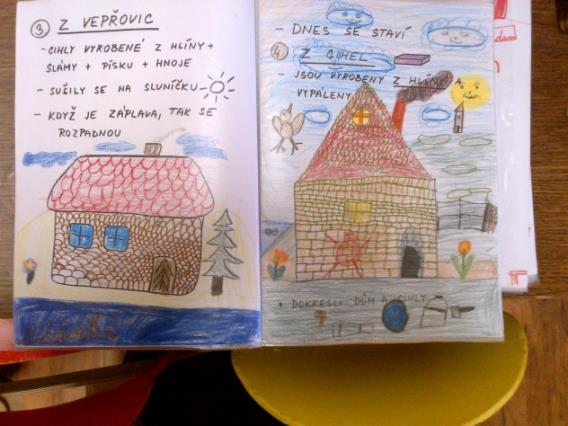 3 Z VEPŘOVIC
- CIHLY VYROBENÉ Z HLÍNY +
SLÁMY + PÍSKU + HNOJE
- SUŠILY SE NA SLUNÍČKU
- KDYŽ JE ZÁPLAVA, TAK SE
ROZPADNOU
- DNES SE STAVÍ
4 Z CIHEL
- JSOU VYROBENY Z HLÍNY A
VYPÁLENY
• DOKRESLI DŮM A CIHLY